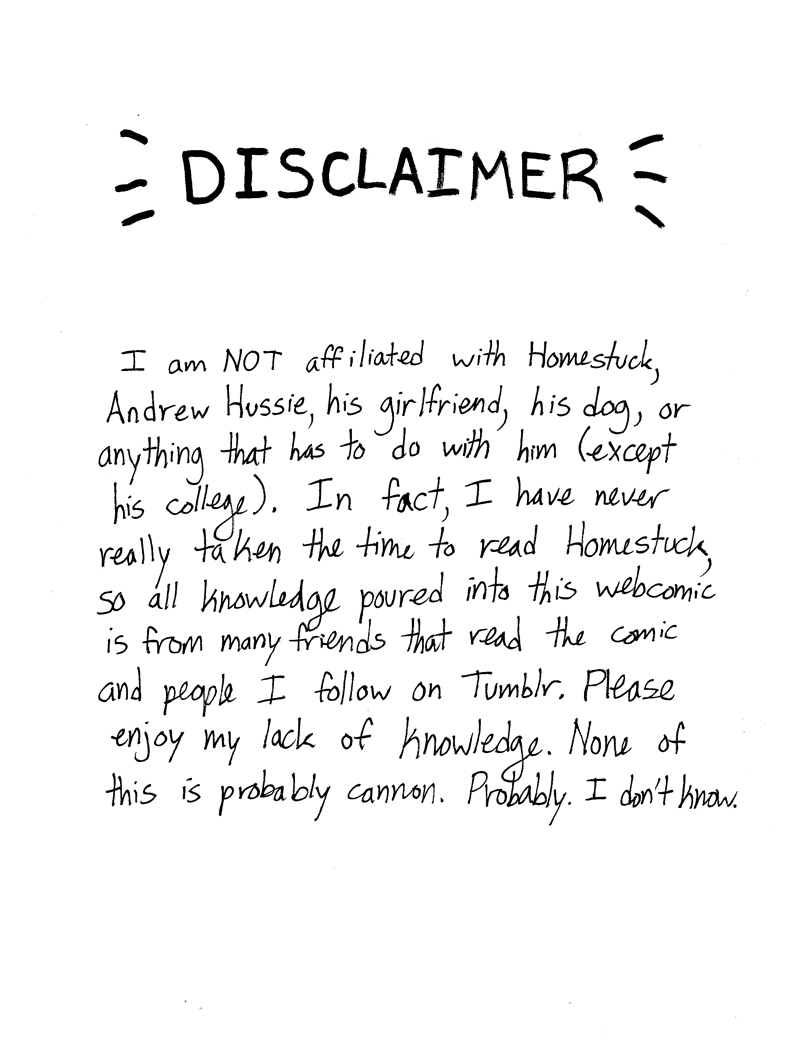 DISCLAIMER
I am NOT affiliated with Homestuck,
Andrew Hussie, his girlfriend, his dog, or
anything that has to do with him (except
his college). In fact, I have never
really taken the time to read Homestuck,
so all knowledge poured into this webcomic
is from many friends that read the comic
and people I follow on Tumblr. Please
enjoy my lack of knowledge. None of
this is probably cannon. Probably. I don't know.